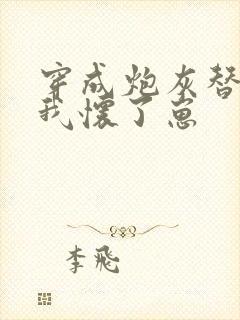 穿成炮灰替
我怀了崽
李飛